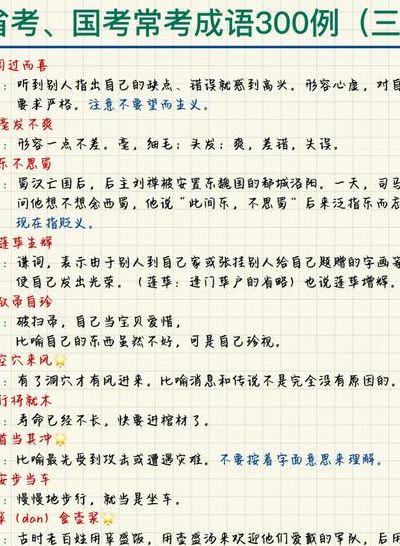 省考、国考常考成语300例（三
闻过而喜
：听到别人指出自己的缺点、错误就感到高兴。形容心虚，对自
要求严格。注意不要望而生义。
毫发不爽
：形容一点不差。毫，细毛；头发；爽，差错，失误。
乐不思蜀
：蜀汉亡国后，后主刘禅被安置东魏国的都城洛阳。一天，司马
问他想不想念西蜀，他说“此间乐，不思蜀”后来泛指乐而忘
现在指贬义。
蓬荜生辉
：谦词，表示由于别人到自己家或张挂别人给自己题赠的字画等
使自己发出光荣。（蓬荜：逢门荜户的省略）也说蓬荜增辉。
敝帚自珍
：破扫帚，自己当宝贝爱惜，
比喻自己的东西虽然不好，可是自己珍视。
空穴来风
：有了洞穴才有风进来。比喻消息和传说不是完全没有原因的。
行将就木
：寿命已经不长，快要进棺材了。
首当其冲
：比喻最先受到攻击或遭遇灾难。不要按着字面意思来理解。
安步当车
：慢慢地步行，就当是坐车。
箪（dan）食壶浆
：古时老百姓用箪盛饭，用壶盛汤来欢迎他们爱戴的军队，后用